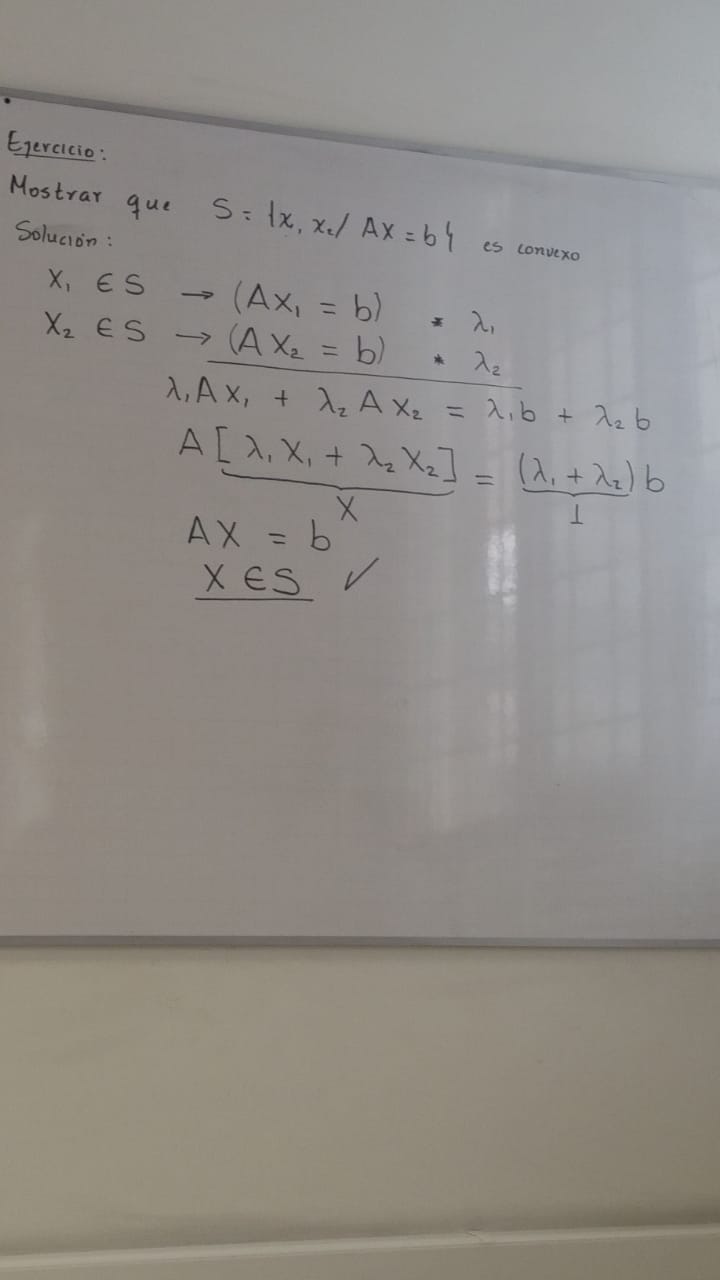 Ejercicio:
Mostrar que S = {x, x₂/ AX = b} es convexo
Solución:
X₁ ∈ S → (AX₁ = b) * λ₁
X₂ ∈ S → (AX₂ = b) * λ₂
λ₁AX₁ + λ₂AX₂ = λ₁b + λ₂b
A[λ₁X₁ + λ₂X₂] = (λ₁ + λ₂)b
X 1
AX = b
X ∈ S ✓